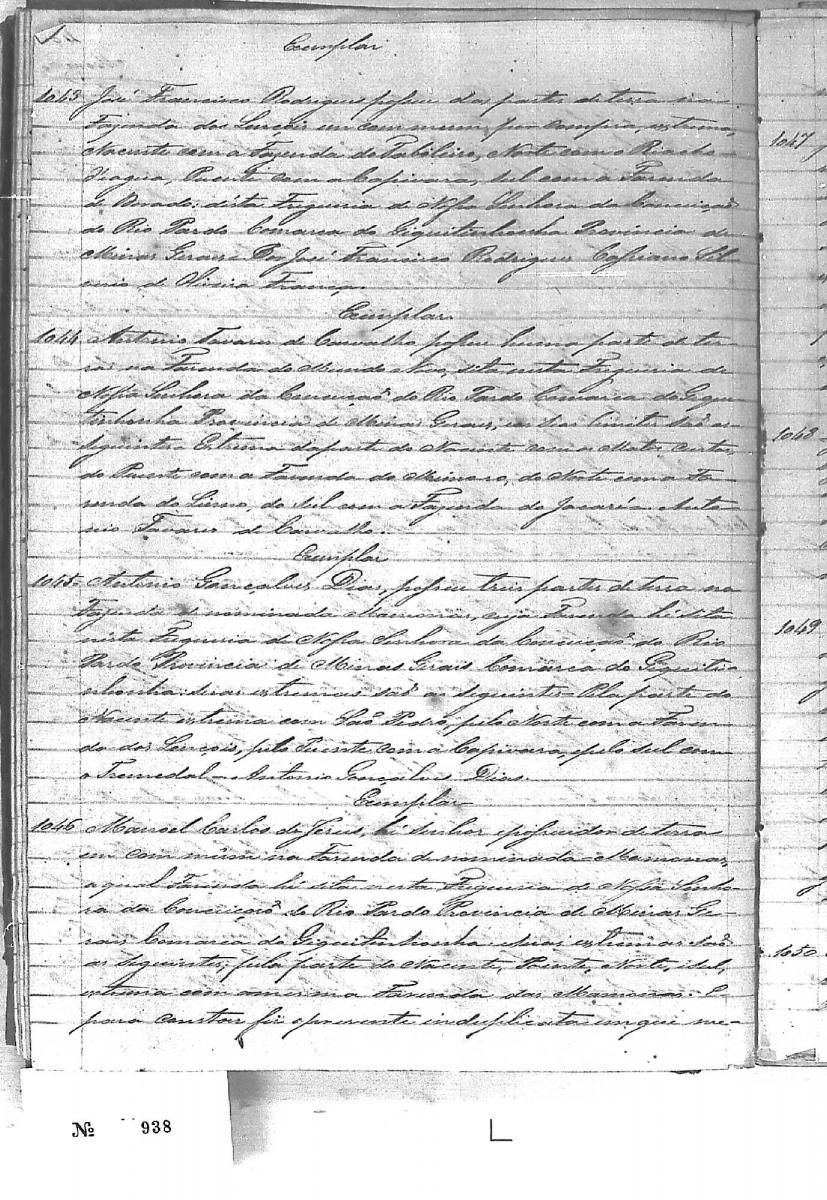 Exemplar
1043 José Francisco Rodrigues possue duas partes de terra na
Fazenda dos Lençois em commum, por compra, extrema,
Nacente com a Fazenda do Tabolleiro, Norte com o Riacho
d'agua, Puente com a Capivara, sul com a Fazenda
do Brado; d'esta Freguesia de Nossa Senhora da Conceição
do Rio Pardo Comarca do Giquitinhonha Provincia de
Minas Geraes Por José Francisco Rodrigues Cassiano
de Oliveira França.
Exemplar
1044 Antonio Tavares de Carvalho possue huma parte de ter-
ras na Fazenda do Mundo Novo, sita nesta Freguesia de
Nossa Senhora da Conceição do Rio Pardo Comarca do Gequi-
tinhonha Provincia de Minas Geraes, e os limites são os
seguintes Extrema da parte do Nacente com o
do Puente com a Fazenda do, do Norte com a Fa-
zenda do, do Sul com a Fazenda do Jacaré. Anto-
nio Tavares de Carvalho.
Exemplar
1045 Antonio Gonçalves Dias, possue tres partes de terra na
Fazenda denominada Mamonas, cuja Fazenda hé sita
nesta Freguesia de Nossa Senhora da Conceição do Rio
Pardo Provincia de Minas Gerais Comarca do Gequiti-
nhonha: suas extremas são as seguintes - Pela parte do
Nacente extrema com São Pedro, pelo Norte com a Fazen-
da dos Lençois, pelo Puente com a Capivara, e pelo sul com
o Tremedal - Antonio Gonçalves Dias.
Exemplar
1046 Manoel Carlos de Jesus, hé senhor e possuidor de terra
em commum na Fazenda denominada - Mamonas,
a qual Fazenda hé sita nesta Freguesia de Nossa Senho-
ra da Conceição do Rio Pardo Provincia de Minas Ge-
raes Comarca do Giquitinhonha e suas extremas são
as seguintes, pela parte do Nacente, Poente, Norte, e sul,
extrema com a mesma Fazenda das Mamonas. E
para constar fiz o presente in duplicata em que me-
1047
1048
1049
1050
Nº 938